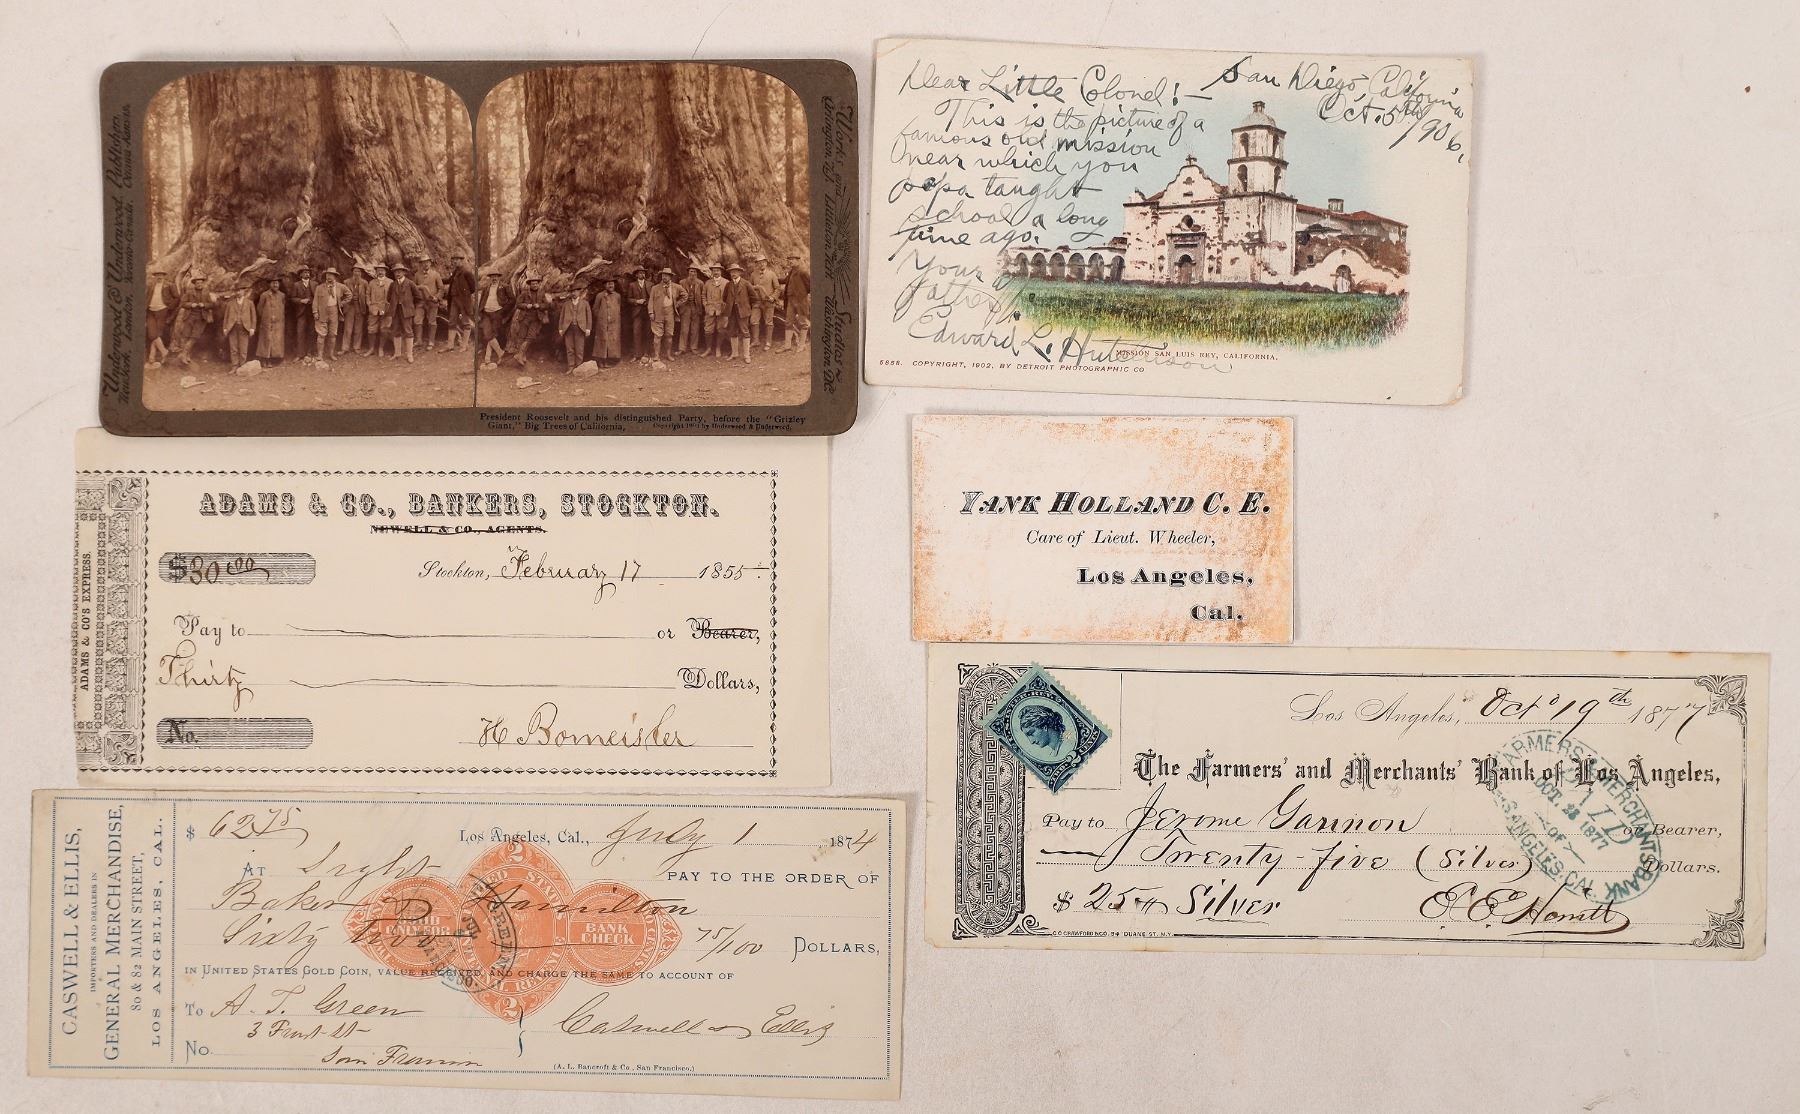 Underwood & Underwood. Publishers.
New York, London, Toronto-Canada, Ottawa-Kansas.
Works and Studios
Arlington, N.J. Littleton, N.H. Washington, D.C.
President Roosevelt and his distinguished Party, before the "Grizley
Giant," Big Trees of California,
by Underwood & Underwood.
Dear Little Colonel!—
San Diego, California
Oct. 5th 1906.
This is the picture of a
famous old mission
near which you
papa taught
school a long
time ago.
Your
father,
Edward L. Hutchison
MISSION SAN LUIS REY, CALIFORNIA.
5888. COPYRIGHT, 1902, BY DETROIT PHOTOGRAPHIC CO
YANK HOLLAND C. E.
Care of Lieut. Wheeler,
Los Angeles,
Cal.
ADAMS & CO'S EXPRESS.
ADAMS & CO., BANKERS, STOCKTON.
NEWELL & CO., AGENTS.
$30.00
Stockton, February 17 1855.
Pay to or Bearer,
Thirty Dollars,
No.
H Bomeisler
Los Angeles, Oct 19th 1877
The Farmers' and Merchants' Bank of Los Angeles,
Pay to Jerome Gannon or Bearer,
Twenty-five (Silver) Dollars.
$25 Silver
C.G. CRAWFORD & CO. 84 DUANE ST. N.Y.
FARMERS & MERCHANTS BANK
OCT. 23 1877
LOS ANGELES, CAL.
CASWELL & ELLIS,
IMPORTERS AND DEALERS IN
GENERAL MERCHANDISE,
80 & 82 MAIN STREET,
LOS ANGELES, CAL.
$ 62 75
Los Angeles, Cal., July 1 1874
AT Sight PAY TO THE ORDER OF
Baker & Hamilton
Sixty two 75/100 DOLLARS,
IN UNITED STATES GOLD COIN, VALUE RECEIVED AND CHARGE THE SAME TO ACCOUNT OF
To A. T. Green
3 Front St
San Francisco
No.
Caswell & Ellis
(A. L. Bancroft & Co., San Francisco.)
2
UNITED STATES
ONLY FOR
BANK
CHECK
2